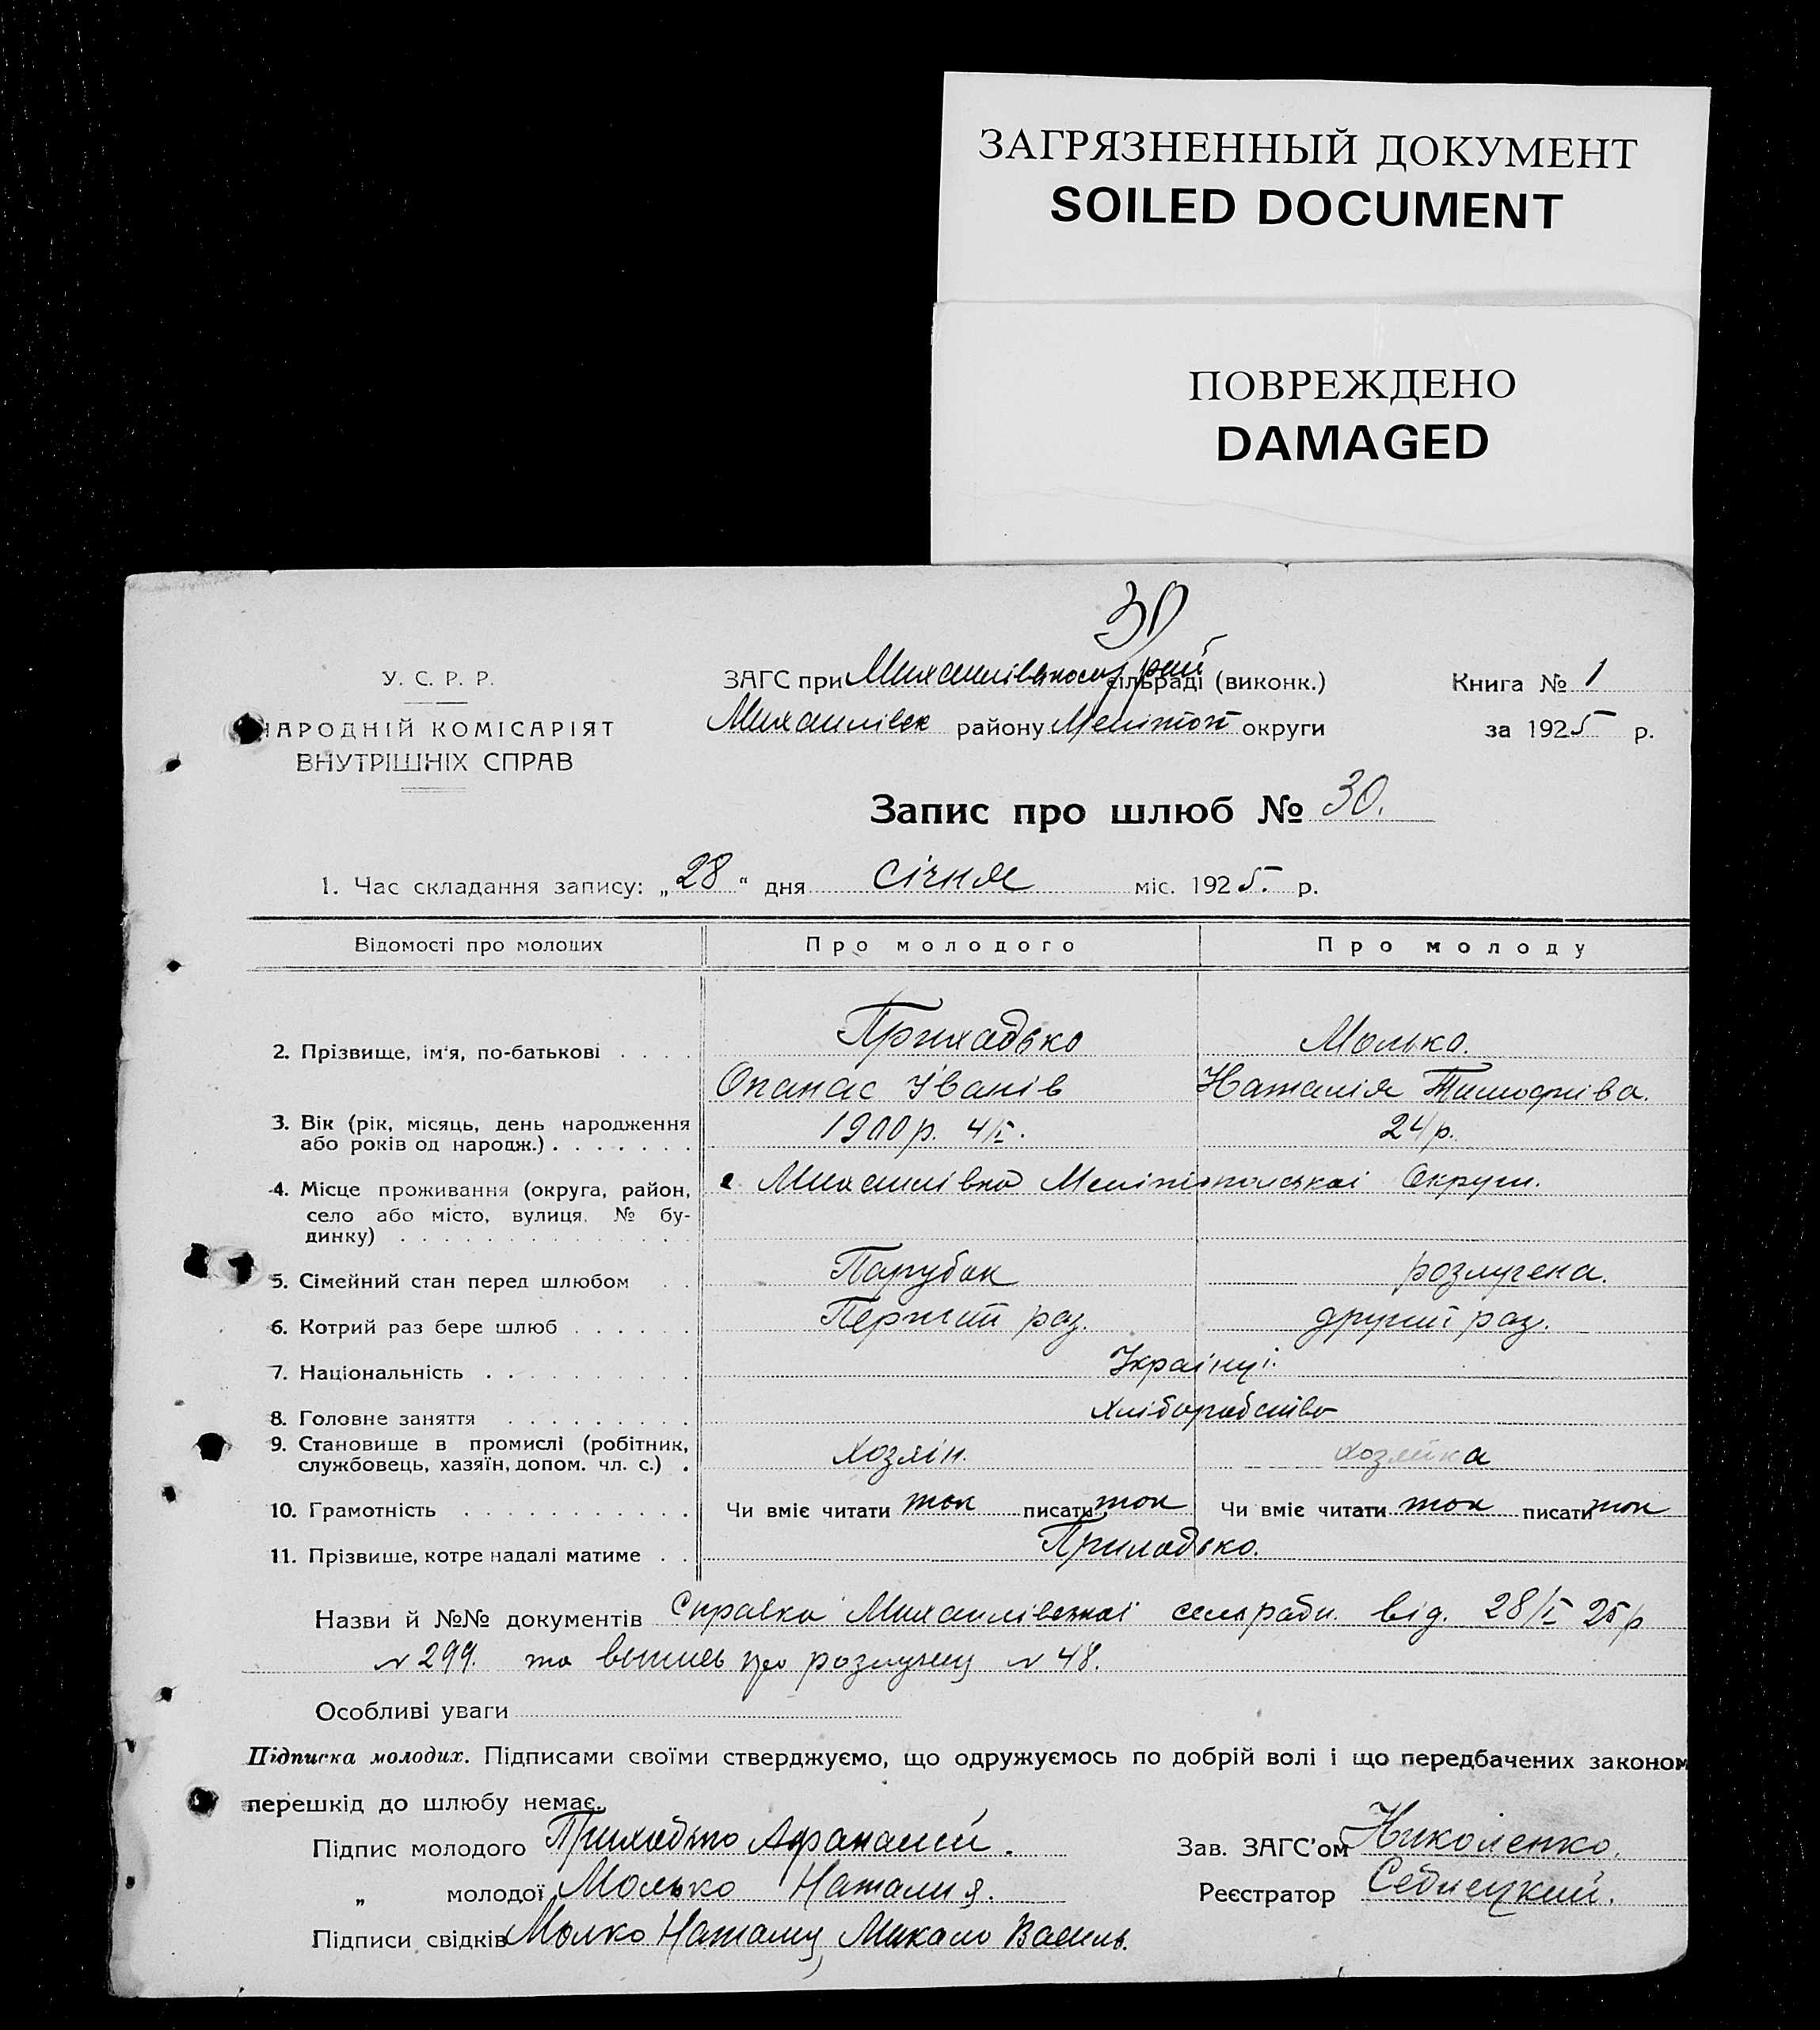 ЗАГРЯЗНЕННЫЙ ДОКУМЕНТ
SOILED DOCUMENT
ПОВРЕЖДЕНО
DAMAGED
30
У. С. Р. Р.
НАРОДНІЙ КОМІСАРІЯТ
ВНУТРІШНІХ СПРАВ
ЗАГС при сільраді (виконк.)
Михаилівск району Мелітоп округи
Книга № 1
за 1925 р.
Запис про шлюб № 30.
1. Час складання запису: „28“ дня січня міс. 1925. р.
Відомості про молодих Про молодого Про молоду
2. Прізвище, ім'я, по-батькові . . . . Приходько Молько.
Опанас Іванів Наталія Тимофіїва.
3. Вік (рік, місяць, день народження
або років од народж.) . . . . . . . 1900 р. 24 р.
4. Місце проживання (округа, район, с Михаилівка Мелітопольскоі Округи.
село або місто, вулиця, № бу-
динку) . . . . . . . . . . . . . .
5. Сімейний стан перед шлюбом . . Парубок розлучена.
6. Котрий раз бере шлюб . . . . . . Первий раз. другий раз.
7. Національність . . . . . . . . . . Украінці.
8. Головне заняття . . . . . . . . . хліборобство
9. Становище в промислі (робітник,
службовець, хазяїн, допом. чл. с.) . хозяін. хозяйка
10. Грамотність . . . . . . . . . . . Чи вміє читати так писати так Чи вміє читати так писати так
11. Прізвище, котре надалі матиме . . Приходько.
Назви й №№ документів Справка Михаилівскоі сельради від. 28/I 25 р
№ 299. та випись про розлуку № 48.
Особливі уваги
Підписка молодих. Підписами своїми стверджуємо, що одружуємось по добрій волі і що передбачених законом
перешкід до шлюбу немає.
Підпис молодого Приходько Афанасий. Зав. ЗАГС'ом Николенко.
„ молодої Молько Наталия. Реєстратор
Підписи свідків Молко Василь.